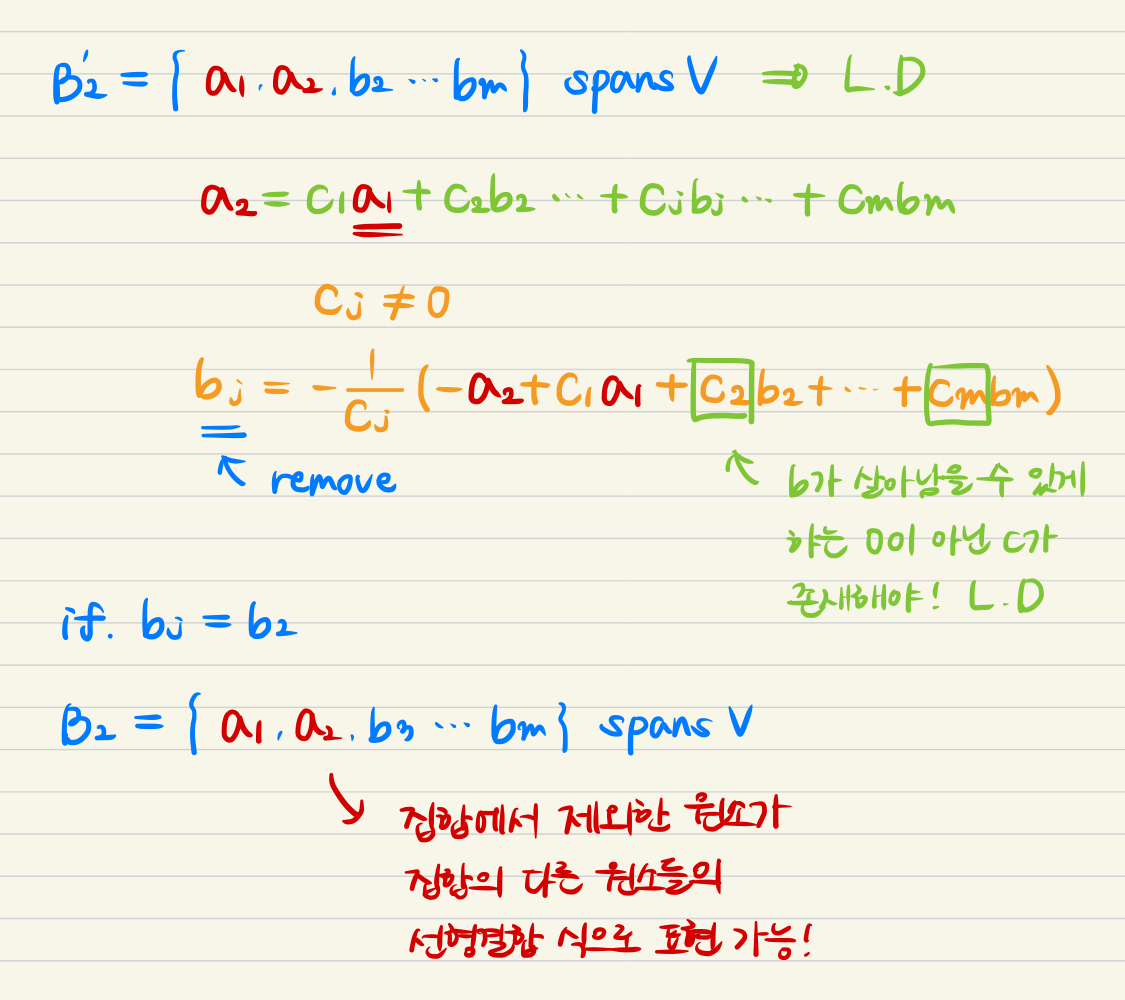 B₂' = { a₁, a₂, b₂ ⋯ bm } spans V ⇒ L.D
a₂ = c₁a₁ + c₂b₂ ⋯ + cⱼbⱼ ⋯ + cmbm
cⱼ ≠ 0
bⱼ = - 1/cⱼ (-a₂ + c₁a₁ + c₂b₂ + ⋯ + cmbm)
↖ remove
↖ b가 살아남을 수 있게
하는 0이 아닌 c가
존재해야! L.D
if. bⱼ = b₂
B₂ = { a₁, a₂, b₃ ⋯ bm } spans V
↘ 집합에서 제외한 원소가
집합의 다른 원소들의
선형결합 식으로 표현 가능!